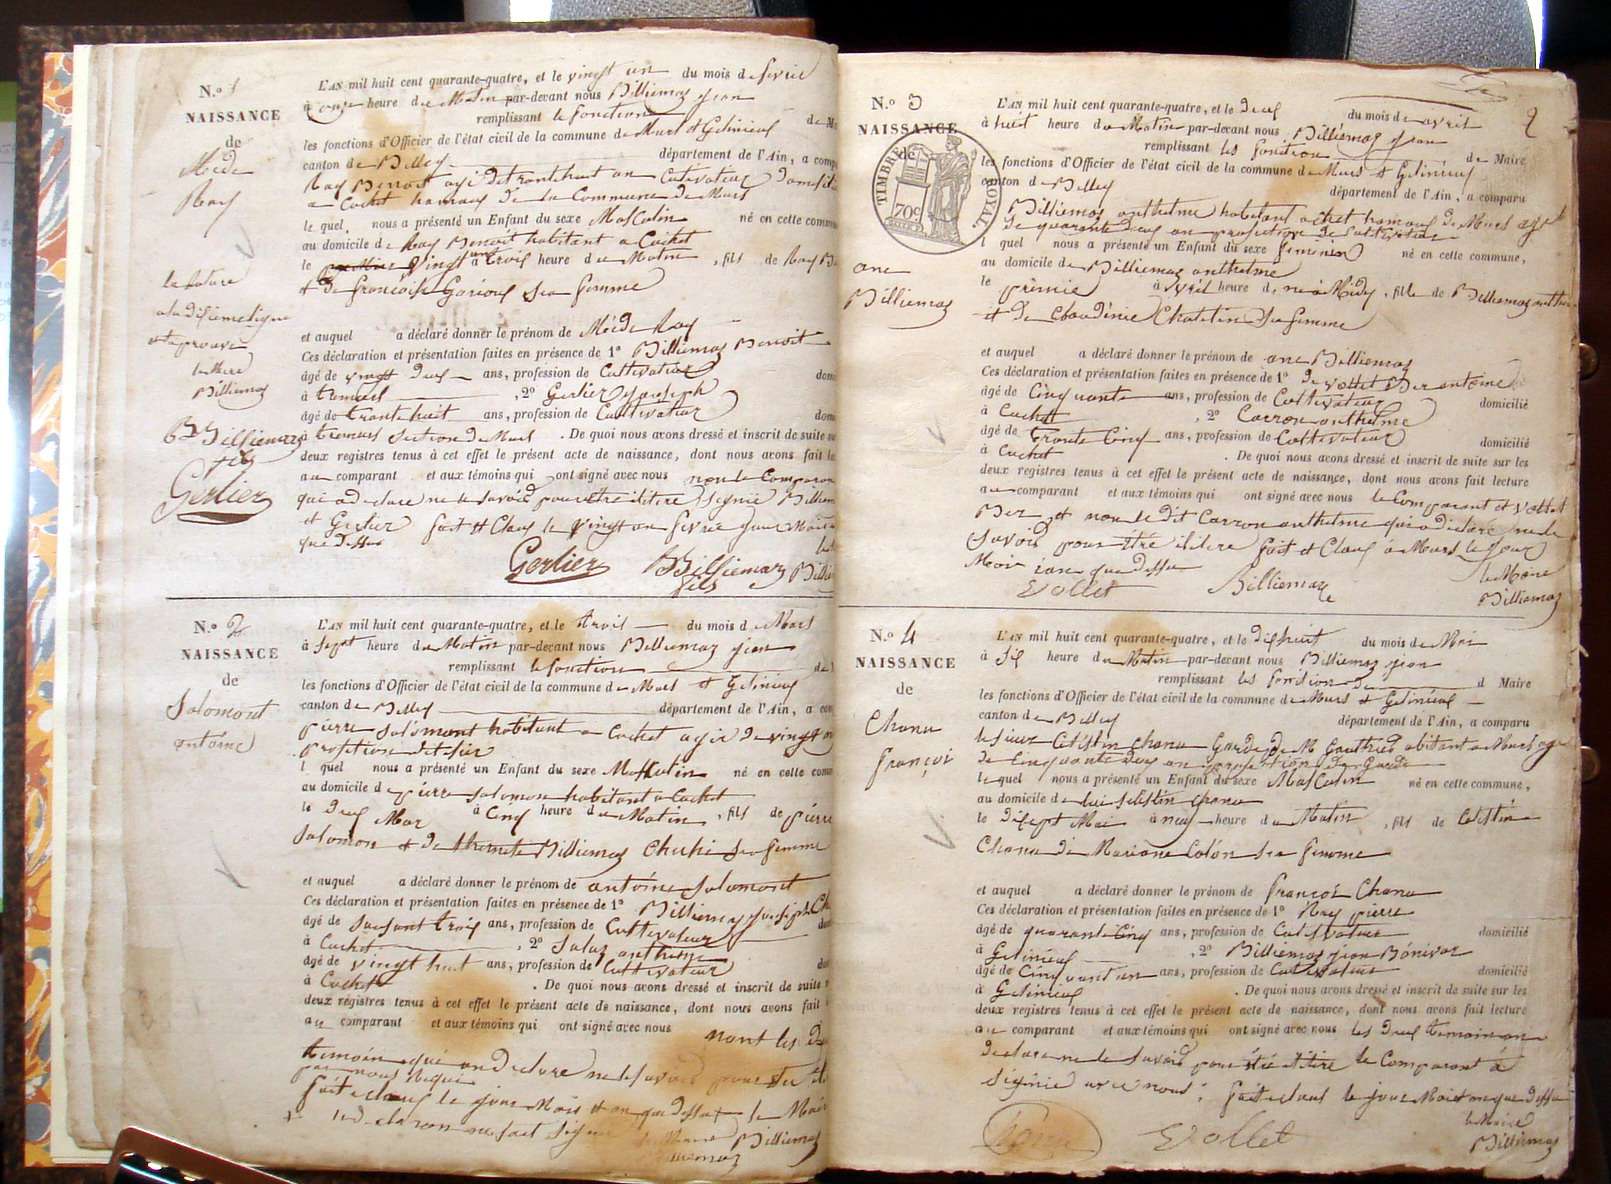 N.º 1
NAISSANCE
de
Méde
Ray
la rature
et aprouvé
le Maire
Billiemaz
B Billiemaz
fils
Gerlier
L'AN mil huit cent quarante-quatre, et le vingt un du mois de fevrié
à onze heure du Matin par-devant nous Billiemaz jean
remplissant les fonction de M
les fonctions d'Officier de l'état civil de la commune de Murs et Gelinieux
canton de Belley département de l'Ain, a comp
Ray Benoit agé de trante huit an Cultivateur Domicil
a Cuchet hameau de la Commune de Murs
le quel, nous a présenté un Enfant du sexe Masculin né en cette commun
au domicile de Ray Benoit habitant a Cuchet
le vingt à trois heure du Matin, fils de Ray B
et de francoise sa femme
et auquel a déclaré donner le prénom de Méde Ray
Ces déclaration et présentation faites en présence de 1º Billiemaz Benoit
âgé de vingt deux ans, profession de Cultivateur domi
à tramurs, 2º Gerlier joseph
âgé de trante huit ans, profession de Cultivateur domi
à tramurs section de Murs. De quoi nous avons dressé et inscrit de suite su
deux registres tenus à cet effet le présent acte de naissance, dont nous avons fait le
au comparant et aux témoins qui ont signé avec nous non le Comparan
qui a declaré ne le savoir pour être ilitere signié Billiem
et Gerlier fait et Claux le vingt un fevrié jour Mois
que dessus
Gerlier B Billiemaz Billie
fils
N.º 2
NAISSANCE
de
Solomont
antoine
L'AN mil huit cent quarante-quatre, et le trois du mois de Mars
à sept heure du Matin par-devant nous Billiemaz jean
remplissant les fonction
les fonctions d'Officier de l'état civil de la commune de Murs et Gelinieux
canton de Belley département de l'Ain, a com
pierre solomont habitant a Cuchet agé de vingt
l quel nous a présenté un Enfant du sexe Masculin né en cette comm
au domicile de pierre solomon habitant a Cuchet
le deux Mar à Cinq heure du Matin, fils de pierre
solomon et de Billiemaz sa femme
et auquel a déclaré donner le prénom de antoine solomont
Ces déclaration et présentation faites en présence de 1º Billiemaz joseph
âgé de soisant trois ans, profession de Cultivateur
à Cuchet, 2º anthelme
âgé de vingt huit ans, profession de Cultivateur
à Cuchet. De quoi nous avons dressé et inscrit de suite
deux régistres tenus à cet effet le présent acte de naissance, dont nous avons fait
au comparant et aux témoins qui ont signé avec nous nont les
temoin qui on declaré ne le savoir pour
par nous requi
fait et claux le jour Mois et an que dessus le Mair
Billiemaz
N.º 3
NAISSANCE
de
TIMBRE ROYAL
70 c
ane
Billiemaz
2
L'AN mil huit cent quarante-quatre, et le deux du mois de avril
à huit heure du Matin par-devant nous Billiemaz jean
remplissant les fonction de Maire
les fonctions d'Officier de l'état civil de la commune de Murs et Gelinieux
canton de Belley département de l'Ain, a comparu
Billiemaz anthelme habitant a Cuchet hameau de Murs agé
de quarante deux an profession de Cultivateur
l quel nous a présenté un Enfant du sexe feminin né en cette commune,
au domicile de Billiemaz anthelme
le premié à avril heure d ne a Midy, fille de Billiemaz anthe
et de Claudinie Chatelin sa femme
et auquel a déclaré donner le prénom de ane Billiemaz
Ces déclaration et présentation faites en présence de 1º de vollet Der antoine
âgé de Cinquante ans, profession de Cultivateur domicilié
à Cuchet, 2º Carron anthelme
âgé de Trante Cinq ans, profession de Cultivateur domicilié
à Cuchet. De quoi nous avons dressé et inscrit de suite sur les
deux registres tenus à cet effet le présent acte de naissance, dont nous avons fait lecture
au comparant et aux témoins qui ont signé avec nous le Comparant et vollet
Der et non le dit Carron anthelme qui a declaré ne le
savoir pour être ilitere fait et Claux a Murs le jour
Moi ian que dessu
le Maire
Vollet Billiemaz Billiemaz
N.º 4
NAISSANCE
de
Chana
françoi
L'AN mil huit cent quarante-quatre, et le dishuit du mois de Mai
à six heure du Matin par-devant nous Billiemaz jean
remplissant les fonction de d Maire
les fonctions d'Officier de l'état civil de la commune de Murs et Gelinieux
canton de Belley département de l'Ain, a comparu
le sieur Celestin Chana Garde de M Gauthier abitant a Murs age
de Cinquante deux an profession de Garde
le quel nous a présenté un Enfant du sexe Masculin né en cette commune,
au domicile de lui selestin Chana
le disept Mai à neuf heure du Matin, fils de Celestin
Chana de Mariane Colon sa femme
et auquel a déclaré donner le prénom de françoi Chana
Ces déclaration et présentation faites en présence de 1º Ray pierre
âgé de quarante Cinq ans, profession de Cultivateur domicilié
à Gelinieux, 2º Billiemaz jean Bonivar
âgé de Cinquant un ans, profession de Cultivateur domicilié
à Gelinieux. De quoi nous avons dressé et inscrit de suite sur les
deux registres tenus à cet effet le présent acte de naissance, dont nous avons fait lecture
au comparant et aux témoins qui ont signé avec nous les deux temoin on
declaré ne le savoir pour être ilitere le Comparant à
siginié avec nous. fait et claux le jour Mois et an que dessu
le Maire
Vollet Billiemaz